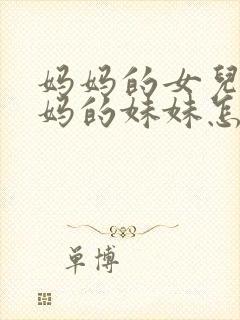 妈妈的女兒
妈的妹妹怎
单博